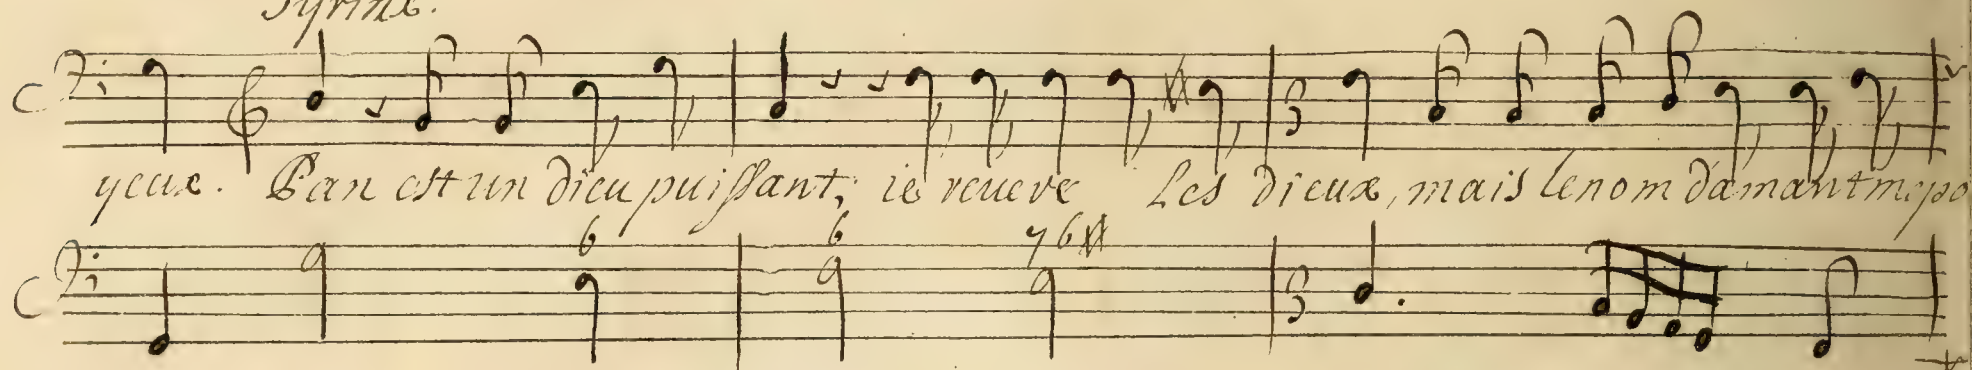 Syrinx.
yeux. Pan est un dieu puissant; ie reuere Les dieux, mais le nom d'amant m'epo
6 6 7 6